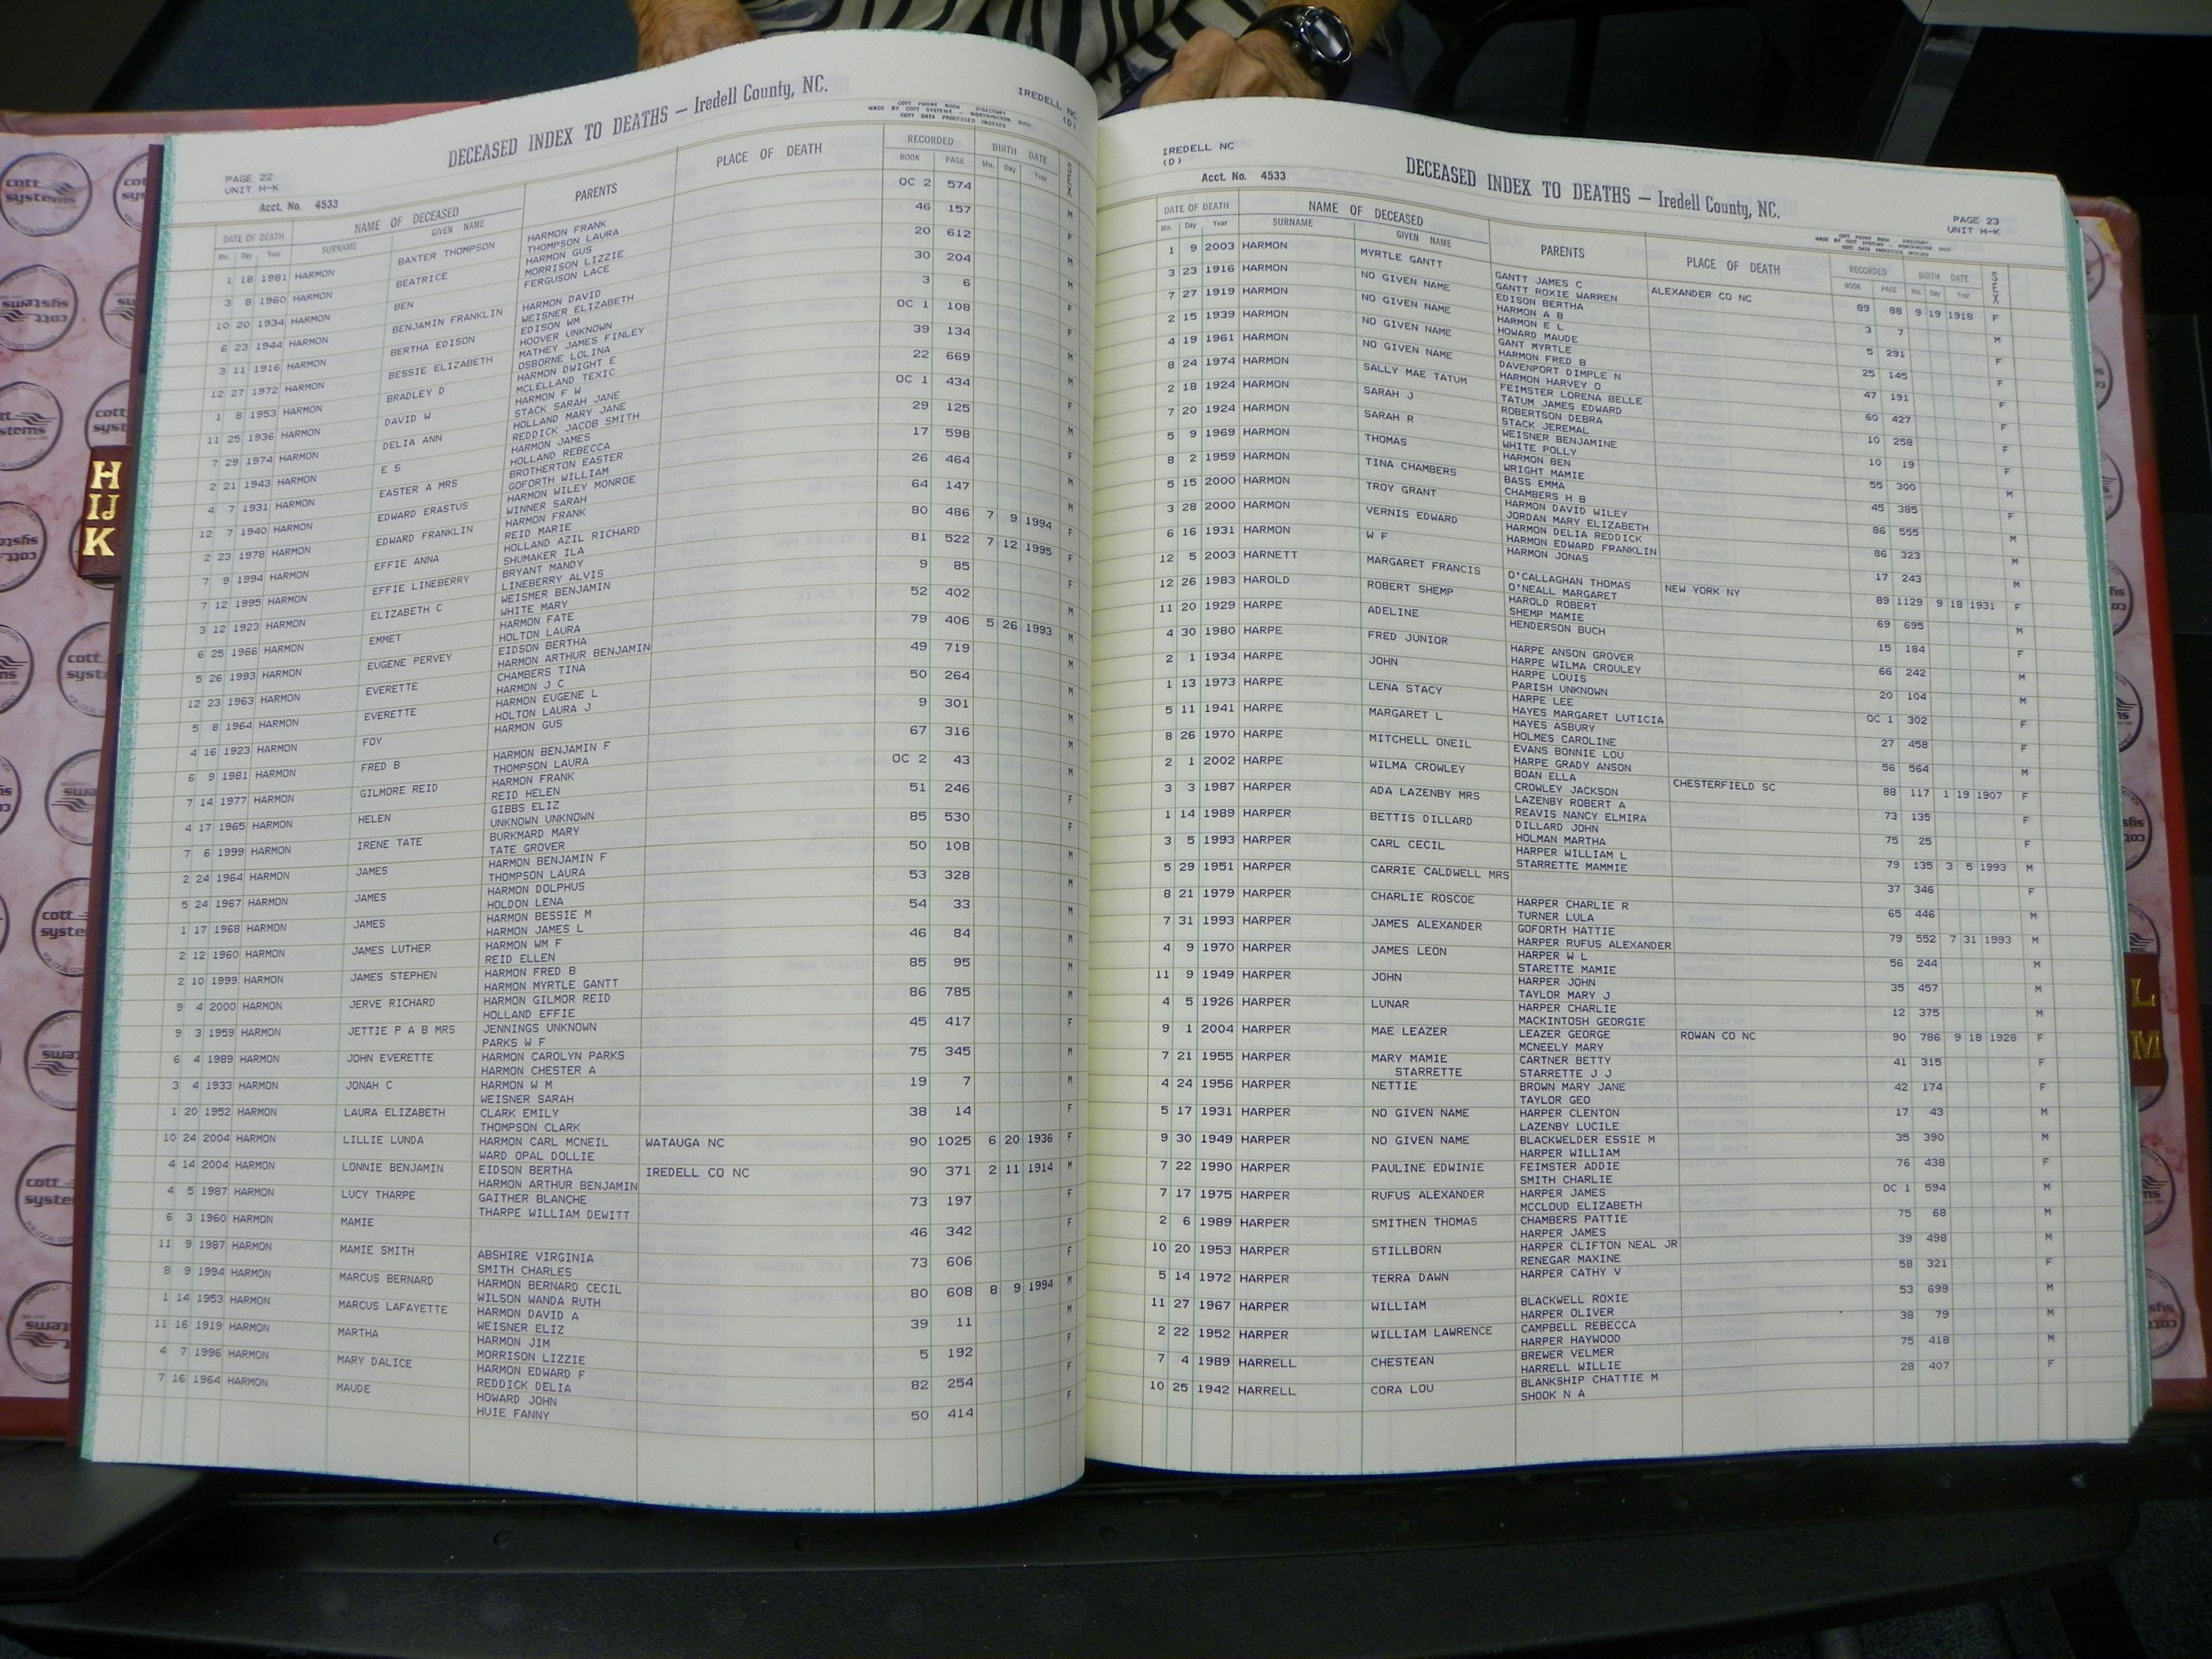 DECEASED INDEX TO DEATHS — Iredell County, NC.
IREDELL NC
(D)
PAGE 22
UNIT H-K
Acct. No. 4533
COTT PHONE BOOK DIRECTORY
MADE BY COTT SYSTEMS - WORTHINGTON, OHIO
COTT DATA PROCESSED INDEXES
DATE OF DEATH NAME OF DECEASED PARENTS PLACE OF DEATH RECORDED BIRTH DATE SEX
Mo. Day Year SURNAME GIVEN NAME BOOK PAGE Mo. Day Year
1 18 1981 HARMON BAXTER THOMPSON HARMON FRANK OC 2 574 M
THOMPSON LAURA
3 8 1960 HARMON BEATRICE HARMON GUS 46 157 F
MORRISON LIZZIE
10 20 1934 HARMON BEN FERGUSON LACE 20 612 M
6 23 1944 HARMON BENJAMIN FRANKLIN HARMON DAVID 30 204 M
WEISNER ELIZABETH
3 11 1916 HARMON BERTHA EDISON EDISON WM 3 6
HOOVER UNKNOWN
12 27 1972 HARMON BESSIE ELIZABETH MATHEY JAMES FINLEY OC 1 108 F
OSBORNE LOLINA
1 8 1953 HARMON BRADLEY D HARMON DWIGHT E 39 134 M
MCLELLAND TEXIC
11 25 1936 HARMON DAVID W HARMON F W 22 669 M
STACK SARAH JANE
7 29 1974 HARMON DELIA ANN HOLLAND MARY JANE OC 1 434 F
REDDICK JACOB SMITH
2 21 1943 HARMON E S HARMON JAMES 29 125 M
HOLLAND REBECCA
4 7 1931 HARMON EASTER A MRS BROTHERTON EASTER 17 598 F
GOFORTH WILLIAM
12 7 1940 HARMON EDWARD ERASTUS HARMON WILEY MONROE 26 464 M
WINNER SARAH
2 23 1978 HARMON EDWARD FRANKLIN HARMON FRANK 64 147 M
REID MARIE
7 9 1994 HARMON EFFIE ANNA HOLLAND AZIL RICHARD 80 486 7 9 1994 F
SHUMAKER ILA
7 12 1995 HARMON EFFIE LINEBERRY BRYANT MANDY 81 522 7 12 1995 F
LINEBERRY ALVIS
3 12 1923 HARMON ELIZABETH C WEISMER BENJAMIN 9 85 F
WHITE MARY
6 25 1966 HARMON EMMET HARMON FATE 52 402 M
HOLTON LAURA
5 26 1993 HARMON EUGENE PERVEY EIDSON BERTHA 79 406 5 26 1993 M
HARMON ARTHUR BENJAMIN
12 23 1963 HARMON EVERETTE CHAMBERS TINA 49 719 M
HARMON J C
5 8 1964 HARMON EVERETTE HARMON EUGENE L 50 264 M
HOLTON LAURA J
4 16 1923 HARMON FOY HARMON GUS 9 301 M
6 9 1981 HARMON FRED B HARMON BENJAMIN F 67 316 M
THOMPSON LAURA
7 14 1977 HARMON GILMORE REID HARMON FRANK OC 2 43 M
REID HELEN
4 17 1965 HARMON HELEN GIBBS ELIZ 51 246 F
UNKNOWN UNKNOWN
7 6 1999 HARMON IRENE TATE BURKMARD MARY 85 530 F
TATE GROVER
2 24 1964 HARMON JAMES HARMON BENJAMIN F 50 108 M
THOMPSON LAURA
5 24 1967 HARMON JAMES HARMON DOLPHUS 53 328 M
HOLDON LENA
1 17 1968 HARMON JAMES HARMON BESSIE M 54 33 M
HARMON JAMES L
2 12 1960 HARMON JAMES LUTHER HARMON WM F 46 84 M
REID ELLEN
2 10 1999 HARMON JAMES STEPHEN HARMON FRED B 85 95 M
HARMON MYRTLE GANTT
9 4 2000 HARMON JERVE RICHARD HARMON GILMOR REID 86 785 M
HOLLAND EFFIE
9 3 1959 HARMON JETTIE P A B MRS JENNINGS UNKNOWN 45 417 F
PARKS W F
6 4 1989 HARMON JOHN EVERETTE HARMON CAROLYN PARKS 75 345 M
HARMON CHESTER A
3 4 1933 HARMON JONAH C HARMON W M 19 7 M
WEISNER SARAH
1 20 1952 HARMON LAURA ELIZABETH CLARK EMILY 38 14 F
THOMPSON CLARK
10 24 2004 HARMON LILLIE LUNDA HARMON CARL MCNEIL WATAUGA NC 90 1025 6 20 1936 F
WARD OPAL DOLLIE
4 14 2004 HARMON LONNIE BENJAMIN EIDSON BERTHA IREDELL CO NC 90 371 2 11 1914 M
HARMON ARTHUR BENJAMIN
4 5 1987 HARMON LUCY THARPE GAITHER BLANCHE 73 197 F
THARPE WILLIAM DEWITT
6 3 1960 HARMON MAMIE 46 342 F
11 9 1987 HARMON MAMIE SMITH ABSHIRE VIRGINIA 73 606 F
SMITH CHARLES
8 9 1994 HARMON MARCUS BERNARD HARMON BERNARD CECIL 80 608 8 9 1994 M
WILSON WANDA RUTH
1 14 1953 HARMON MARCUS LAFAYETTE HARMON DAVID A 39 11 M
WEISNER ELIZ
11 16 1919 HARMON MARTHA HARMON JIM 5 192 F
MORRISON LIZZIE
4 7 1996 HARMON MARY DALICE HARMON EDWARD F 82 254 F
REDDICK DELIA
7 16 1964 HARMON MAUDE HOWARD JOHN 50 414 F
HUIE FANNY
IREDELL NC
(D)
Acct. No. 4533
DECEASED INDEX TO DEATHS — Iredell County, NC.
PAGE 23
UNIT H-K
COTT PHONE BOOK DIRECTORY
MADE BY COTT SYSTEMS - WORTHINGTON, OHIO
COTT DATA PROCESSED INDEXES
DATE OF DEATH NAME OF DECEASED PARENTS PLACE OF DEATH RECORDED BIRTH DATE SEX
Mo. Day Year SURNAME GIVEN NAME BOOK PAGE Mo. Day Year
1 9 2003 HARMON MYRTLE GANTT GANTT JAMES C ALEXANDER CO NC 89 98 9 19 1918 F
GANTT ROXIE WARREN
3 23 1916 HARMON NO GIVEN NAME EDISON BERTHA 3 7 M
HARMON A B
7 27 1919 HARMON NO GIVEN NAME HARMON E L 5 291 F
HOWARD MAUDE
2 15 1939 HARMON NO GIVEN NAME GANT MYRTLE 25 145 F
HARMON FRED B
4 19 1961 HARMON NO GIVEN NAME DAVENPORT DIMPLE N 47 191 F
HARMON HARVEY O
8 24 1974 HARMON SALLY MAE TATUM FEIMSTER LORENA BELLE 60 427 F
TATUM JAMES EDWARD
2 18 1924 HARMON SARAH J ROBERTSON DEBRA 10 258 F
STACK JEREMAL
7 20 1924 HARMON SARAH R WEISNER BENJAMINE 10 19 F
WHITE POLLY
5 9 1969 HARMON THOMAS HARMON BEN 55 300 M
WRIGHT MAMIE
8 2 1959 HARMON TINA CHAMBERS BASS EMMA 45 385 F
CHAMBERS H B
5 15 2000 HARMON TROY GRANT HARMON DAVID WILEY 86 555 M
JORDAN MARY ELIZABETH
3 28 2000 HARMON VERNIS EDWARD HARMON DELIA REDDICK 86 323 M
HARMON EDWARD FRANKLIN
6 16 1931 HARMON W F HARMON JONAS 17 243 M
12 5 2003 HARNETT MARGARET FRANCIS O'CALLAGHAN THOMAS NEW YORK NY 89 1129 9 18 1931 F
O'NEALL MARGARET
12 26 1983 HAROLD ROBERT SHEMP HAROLD ROBERT 69 695 M
SHEMP MAMIE
11 20 1929 HARPE ADELINE HENDERSON BUCH 15 184 F
4 30 1980 HARPE FRED JUNIOR HARPE ANSON GROVER 66 242 M
HARPE WILMA CROULEY
2 1 1934 HARPE JOHN HARPE LOUIS 20 104 M
PARISH UNKNOWN
1 13 1973 HARPE LENA STACY HARPE LEE OC 1 302 F
HAYES MARGARET LUTICIA
5 11 1941 HARPE MARGARET L HAYES ASBURY 27 458 F
HOLMES CAROLINE
8 26 1970 HARPE MITCHELL ONEIL EVANS BONNIE LOU 56 564 M
HARPE GRADY ANSON
2 1 2002 HARPE WILMA CROWLEY BOAN ELLA CHESTERFIELD SC 88 117 1 19 1907 F
CROWLEY JACKSON
3 3 1987 HARPER ADA LAZENBY MRS LAZENBY ROBERT A 73 135 F
REAVIS NANCY ELMIRA
1 14 1989 HARPER BETTIS DILLARD DILLARD JOHN 75 25 F
HOLMAN MARTHA
3 5 1993 HARPER CARL CECIL HARPER WILLIAM L 79 135 3 5 1993 M
STARRETTE MAMMIE
5 29 1951 HARPER CARRIE CALDWELL MRS 37 346 F
8 21 1979 HARPER CHARLIE ROSCOE HARPER CHARLIE R 65 446 M
TURNER LULA
7 31 1993 HARPER JAMES ALEXANDER GOFORTH HATTIE 79 552 7 31 1993 M
HARPER RUFUS ALEXANDER
4 9 1970 HARPER JAMES LEON HARPER W L 56 244 M
STARETTE MAMIE
11 9 1949 HARPER JOHN HARPER JOHN 35 457 M
TAYLOR MARY J
4 5 1926 HARPER LUNAR HARPER CHARLIE 12 375 M
MACKINTOSH GEORGIE
9 1 2004 HARPER MAE LEAZER LEAZER GEORGE ROWAN CO NC 90 786 9 18 1928 F
MCNEELY MARY
7 21 1955 HARPER MARY MAMIE CARTNER BETTY 41 315 F
STARRETTE STARRETTE J J
4 24 1956 HARPER NETTIE BROWN MARY JANE 42 174 F
TAYLOR GEO
5 17 1931 HARPER NO GIVEN NAME HARPER CLENTON 17 43 M
LAZENBY LUCILE
9 30 1949 HARPER NO GIVEN NAME BLACKWELDER ESSIE M 35 390 M
HARPER WILLIAM
7 22 1990 HARPER PAULINE EDWINIE FEIMSTER ADDIE 76 438 F
SMITH CHARLIE
7 17 1975 HARPER RUFUS ALEXANDER HARPER JAMES OC 1 594 M
MCCLOUD ELIZABETH
2 6 1989 HARPER SMITHEN THOMAS CHAMBERS PATTIE 75 68 M
HARPER JAMES
10 20 1953 HARPER STILLBORN HARPER CLIFTON NEAL JR 39 498 M
RENEGAR MAXINE
5 14 1972 HARPER TERRA DAWN HARPER CATHY V 58 321 F
11 27 1967 HARPER WILLIAM BLACKWELL ROXIE 53 699 M
HARPER OLIVER
2 22 1952 HARPER WILLIAM LAWRENCE CAMPBELL REBECCA 38 79 M
HARPER HAYWOOD
7 4 1989 HARRELL CHESTEAN BREWER VELMER 75 418 M
HARRELL WILLIE
10 25 1942 HARRELL CORA LOU BLANKSHIP CHATTIE M 28 407 F
SHOOK N A
H
IJ
K
L
M
cott systems